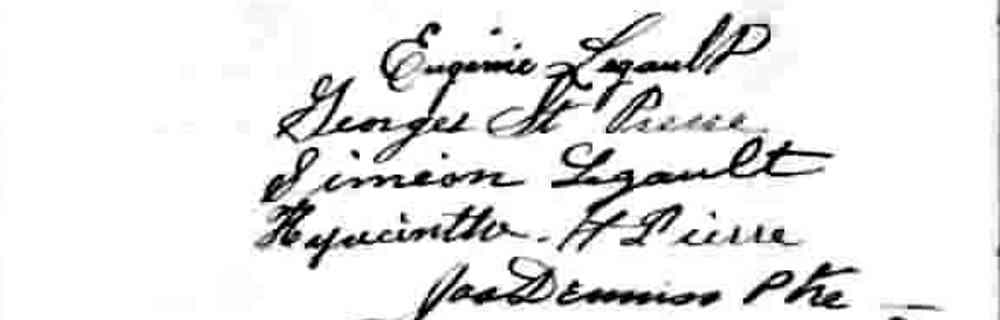 Eugenie Legault
Georges St Pierre
Simeon Legault
Hyacinthe St Pierre
Jas Dennison Ptre